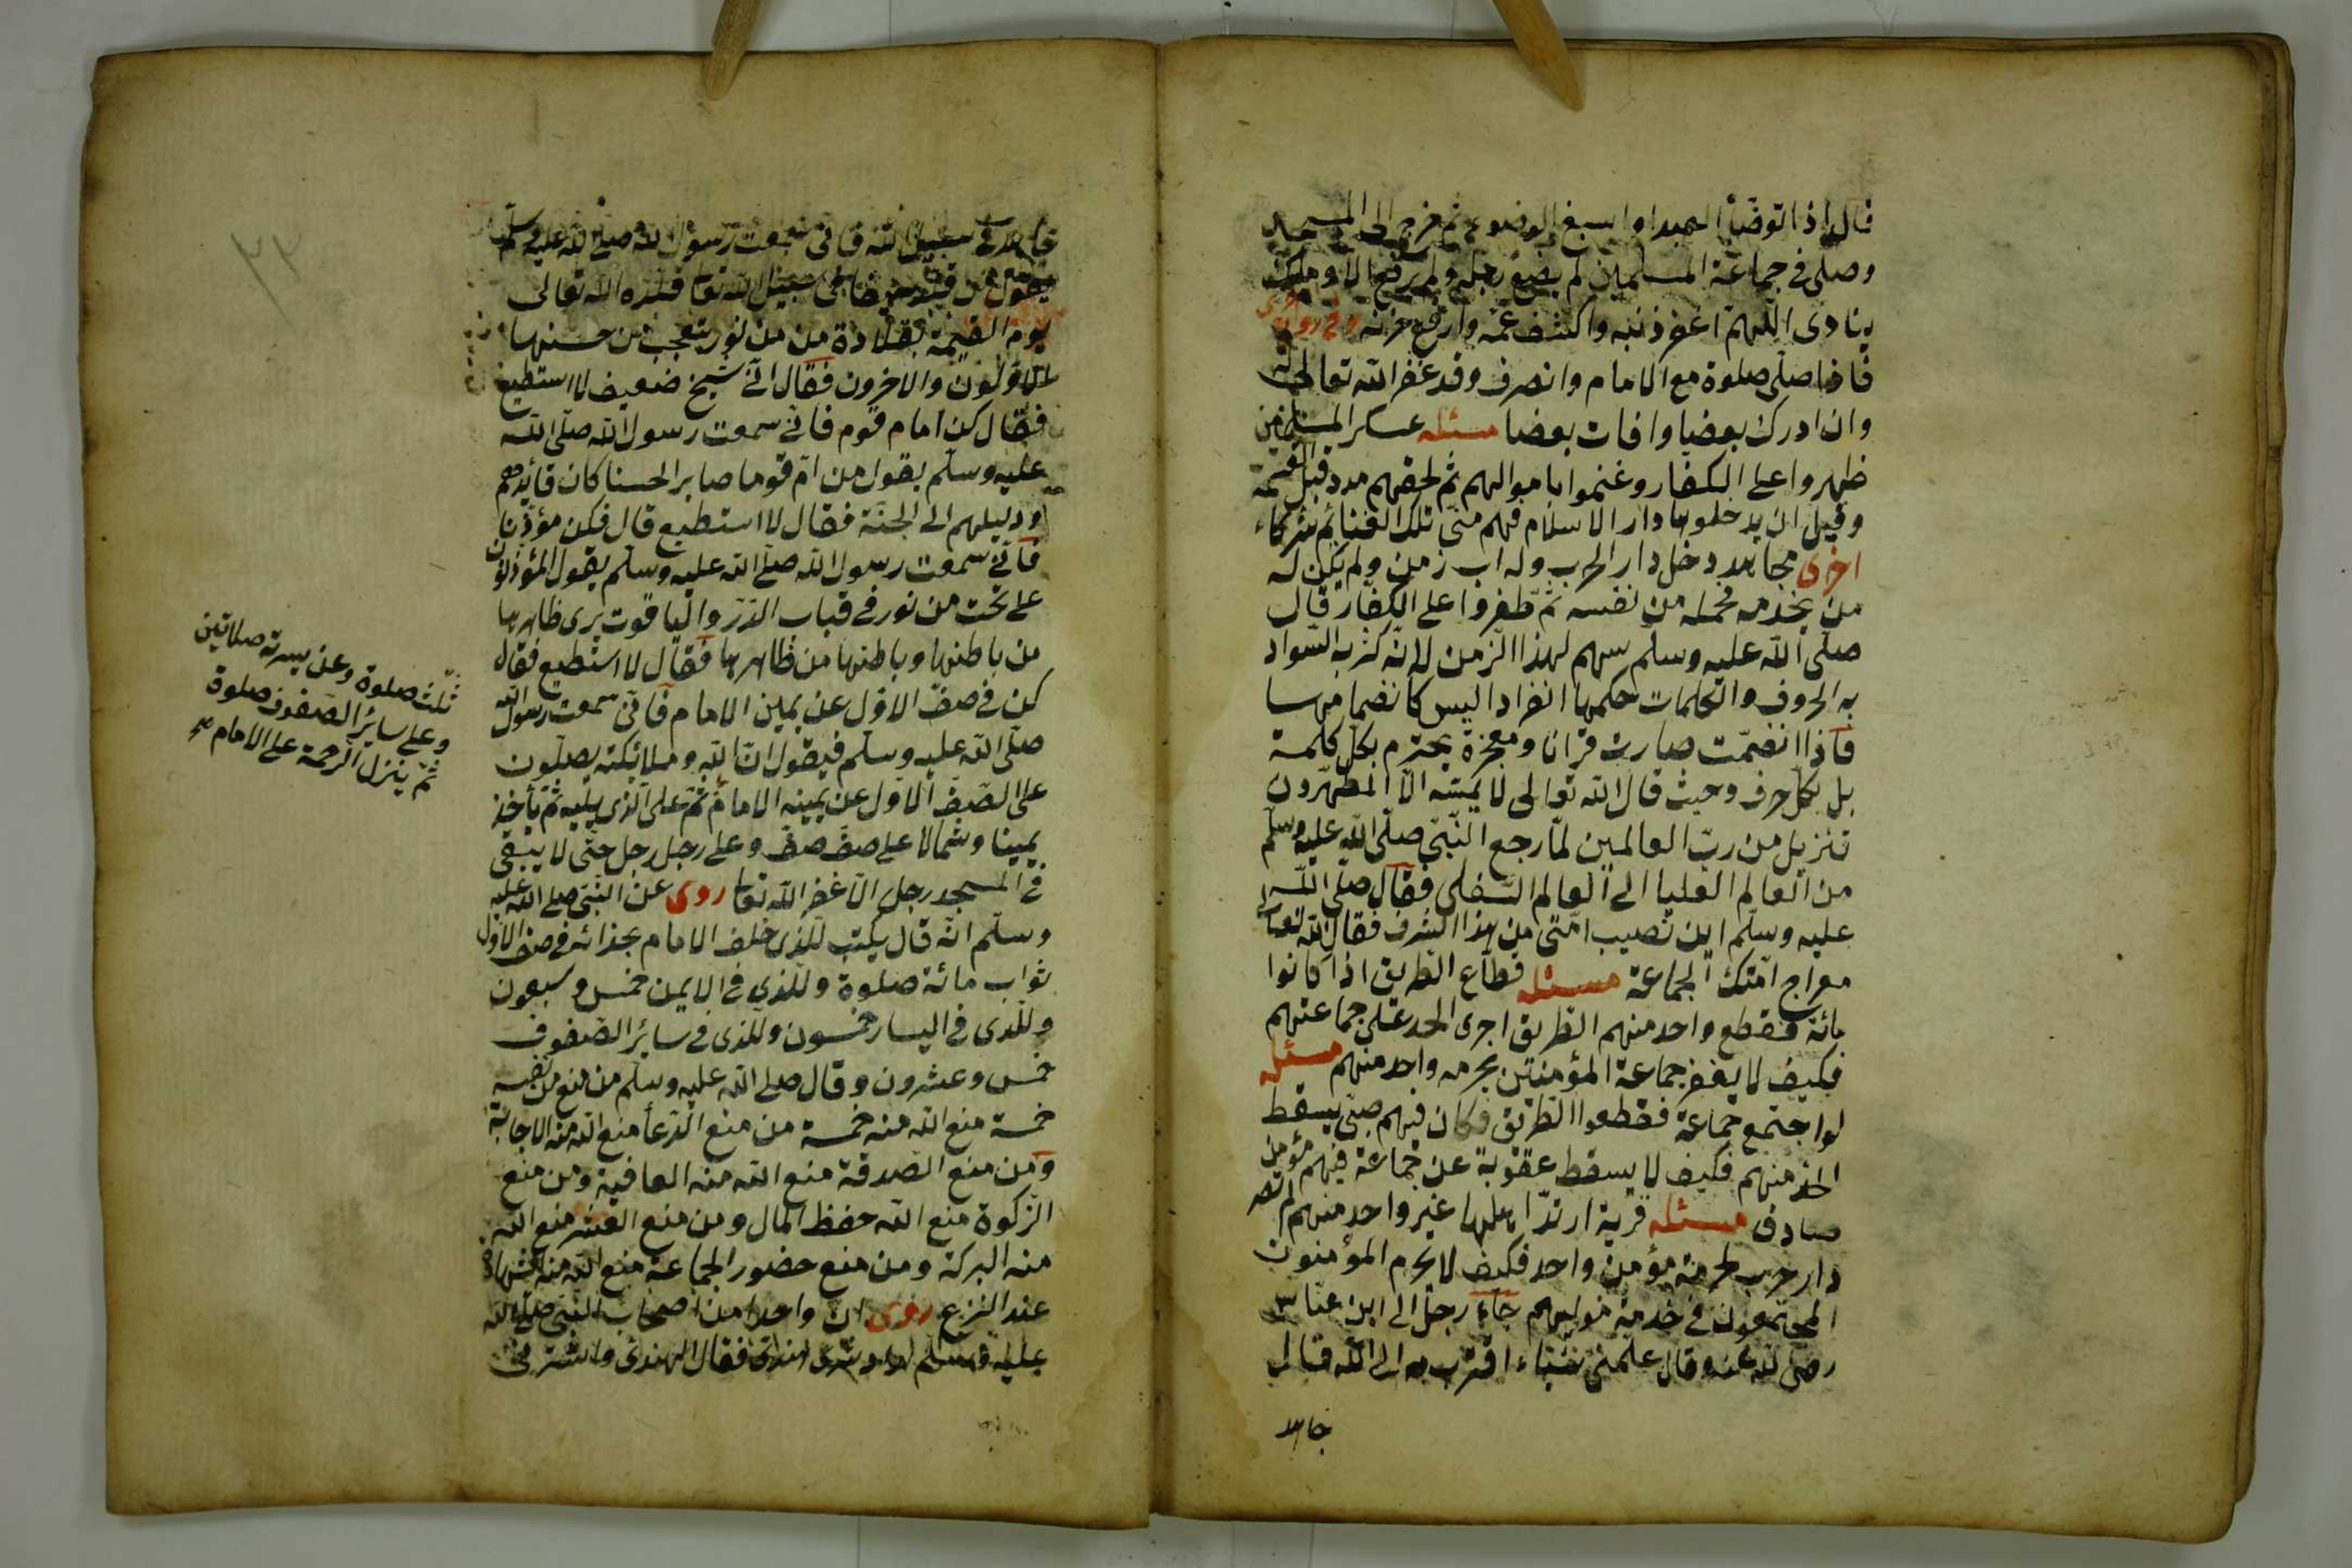 قال اذا توضأ العبد او اسبغ الوضوء ثم خرج الى المسجد
وصلى فى جماعة المسلمين لم يضع رجله ولم يرفع الا وملك
ينادى اللهم اغفر ذنبه واكشف غمه وارفع حزنه
فاذا صلى صلوة مع الامام وانصرف وقد غفر الله تعالى له
وان ادرك بعضا وافات بعضا مسئله عسكر المسلمين
ظهروا على الكفار وغنموا باموالهم ثم لحقهم مدد قبل القسمة
وقيل ان يدخلوها دار الاسلام فهم منى تلك الغنائم شركاء
اخرى مجاهد دخل دار الحرب وله اب زمن ولم يكن له
من يخدمه فحمله من نفسه ثم ظفروا على الكفار قال
صلى الله عليه وسلم سهم لهذا الزمن لانه كثر به السواد
به الحروف والكلمات حكمها انفرادا ليس كانضمامها
فاذا انضمت صارت قرانا ومعجزة يحترم بكل كلمة
بل بكل حرف وحيث قال الله تعالى لا يمسه الا المطهرون
تنزيل من رب العالمين لما رجع النبى صلى الله عليه وسلم
من العالم العليا الى العالم السفلى فقال صلى الله
عليه وسلم اين نصيب امتى من هذا الشرف فقال الله تعالى
معراج امتك الجماعة مسئله قطاع الطريق اذا كانوا
مائة فقطع واحد منهم الطريق اجرى الحد على جماعتهم
فكيف لا يغفر جماعة المؤمنين بحرمه واحد منهم مسئله
لو اجتمع جماعة فقطعوا الطريق فكان فيهم صبى يسقط
الحد منهم فكيف لا يسقط عقوبة عن جماعة فيهم مؤمن
صادق مسئله قرية ارتد اهلها غير واحد منهم لم تصر
دار حرب لحرمة مؤمن واحد فكيف لا يحرم المؤمنون
المجتمعون فى خدمة موليهم جاء رجل الى ابن عباس
رضى الله عنه وقال علمنى شيئاء اقترب به الى الله قال
جاهد
جاهد فى سبيل الله فانى سمعت رسول الله صلى الله عليه وسلم
يقول من سبيل الله تعا قلده الله تعالى
يوم القيمة بقلادة من من نور يتعجب من حسنها
الاولون والاخرون فقال انى شيخ ضعيف لا استطيع
فقال كن امام قوم فانى سمعت رسول الله صلى الله
عليه وسلم يقول من ام قوما صابرا لحسنا كان قائدهم
ودليلهم الى الجنة فقال لا استطيع قال فكن مؤذنا
فانى سمعت رسول الله صلى الله عليه وسلم يقول المؤذنون
على تخت من نور فى قباب الدر والياقوت يرى ظاهرها
من باطنها وباطنها من ظاهرها فقال لا استطيع فقال
كن فى صف الاول عن يمين الامام فانى سمعت رسول الله
صلى الله عليه وسلم فيقول ان الله وملائكته يصلون
على الصف الاول عن يمينه الامام ثم على الذى يليه ثم يأخذ
يمينا وشمالا على صف صف وعلى رجل رجل حتى لا يبقى
فى المسجد رجل الا غفر الله تعا روى عن النبى صلى الله عليه
وسلم انه قال يكتب للذى خلف الامام بحذائه فى صف الاول
ثواب مائة صلوة وللذى فى الايمن خمس وسبعون
وللذى فى اليسار خمسون وللذى فى سائر الصفوف
خمس وعشرون وقال صلى الله عليه وسلم من منع من نفسه
خمسة منع الله منه خمسة من منع الدعأ منع الله منه الاجابة
ومن منع الصدقة منع الله منه العافية ومن منع
الزكوة منع الله حفظ المال ومن منع العشر منع الله
منه البركة ومن منع حضور الجماعة منع الله منه الشهادة
عند النزع روى ان واحدا من اصحاب النبى صلى الله
عليه وسلم
ثلث صلوة وعن يسرته صلاتين
وعلى سائر الصفوف صلوة
ثم ينزل الرحمة على الامام صح